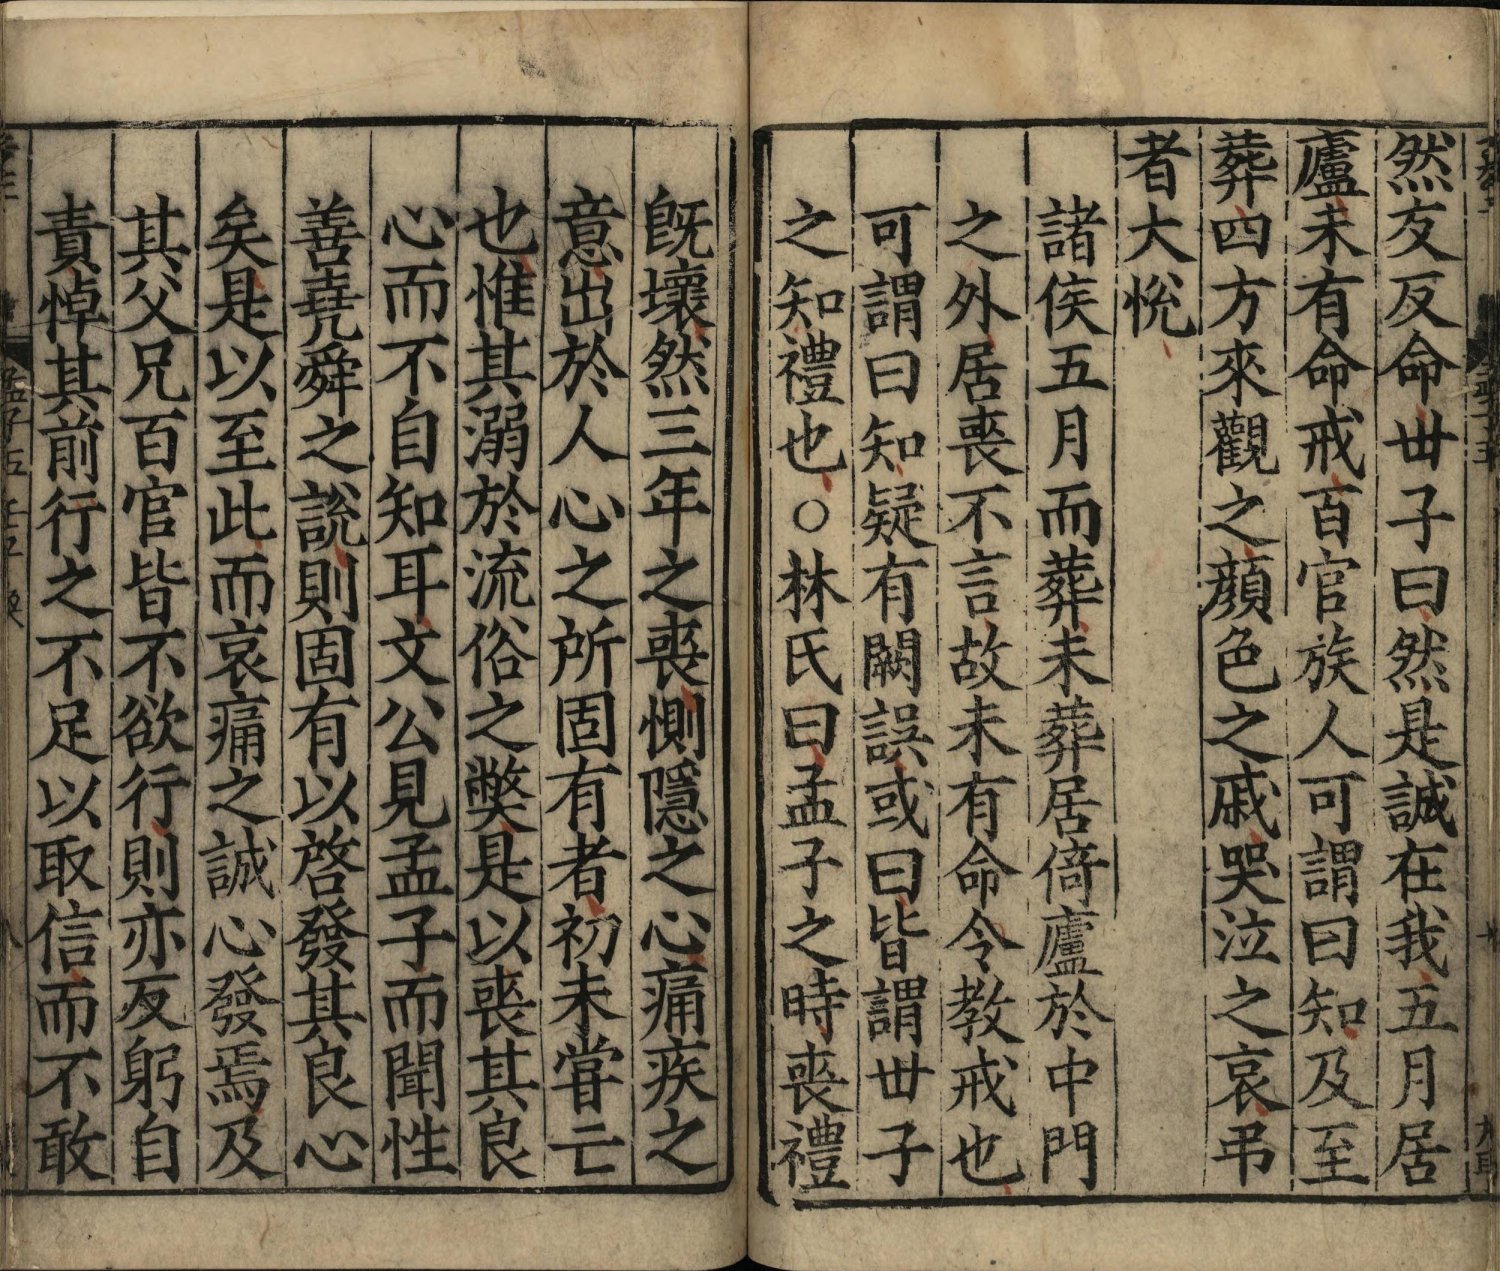 然友反命世子曰然是誠在我五月居
廬未有命戒百官族人可謂曰知及至
葬四方來觀之顔色之戚哭泣之哀弔
者大悅
諸侯五月而葬未葬居倚廬於中門
之外居喪不言故未有命令教戒也
可謂曰知疑有闕誤或曰皆謂世子
之知禮也○林氏曰孟子之時喪禮
旣壞然三年之喪惻隱之心痛疾之
意出於人心之所固有者初未甞亡
也惟其溺於流俗之獘是以喪其良
心而不自知耳文公見孟子而聞性
善堯舜之說則固有以啓發其良心
矣是以至此而哀痛之誠心發焉及
其父兄百官皆不欲行則亦反躬自
責悼其前行之不足以取信而不敢